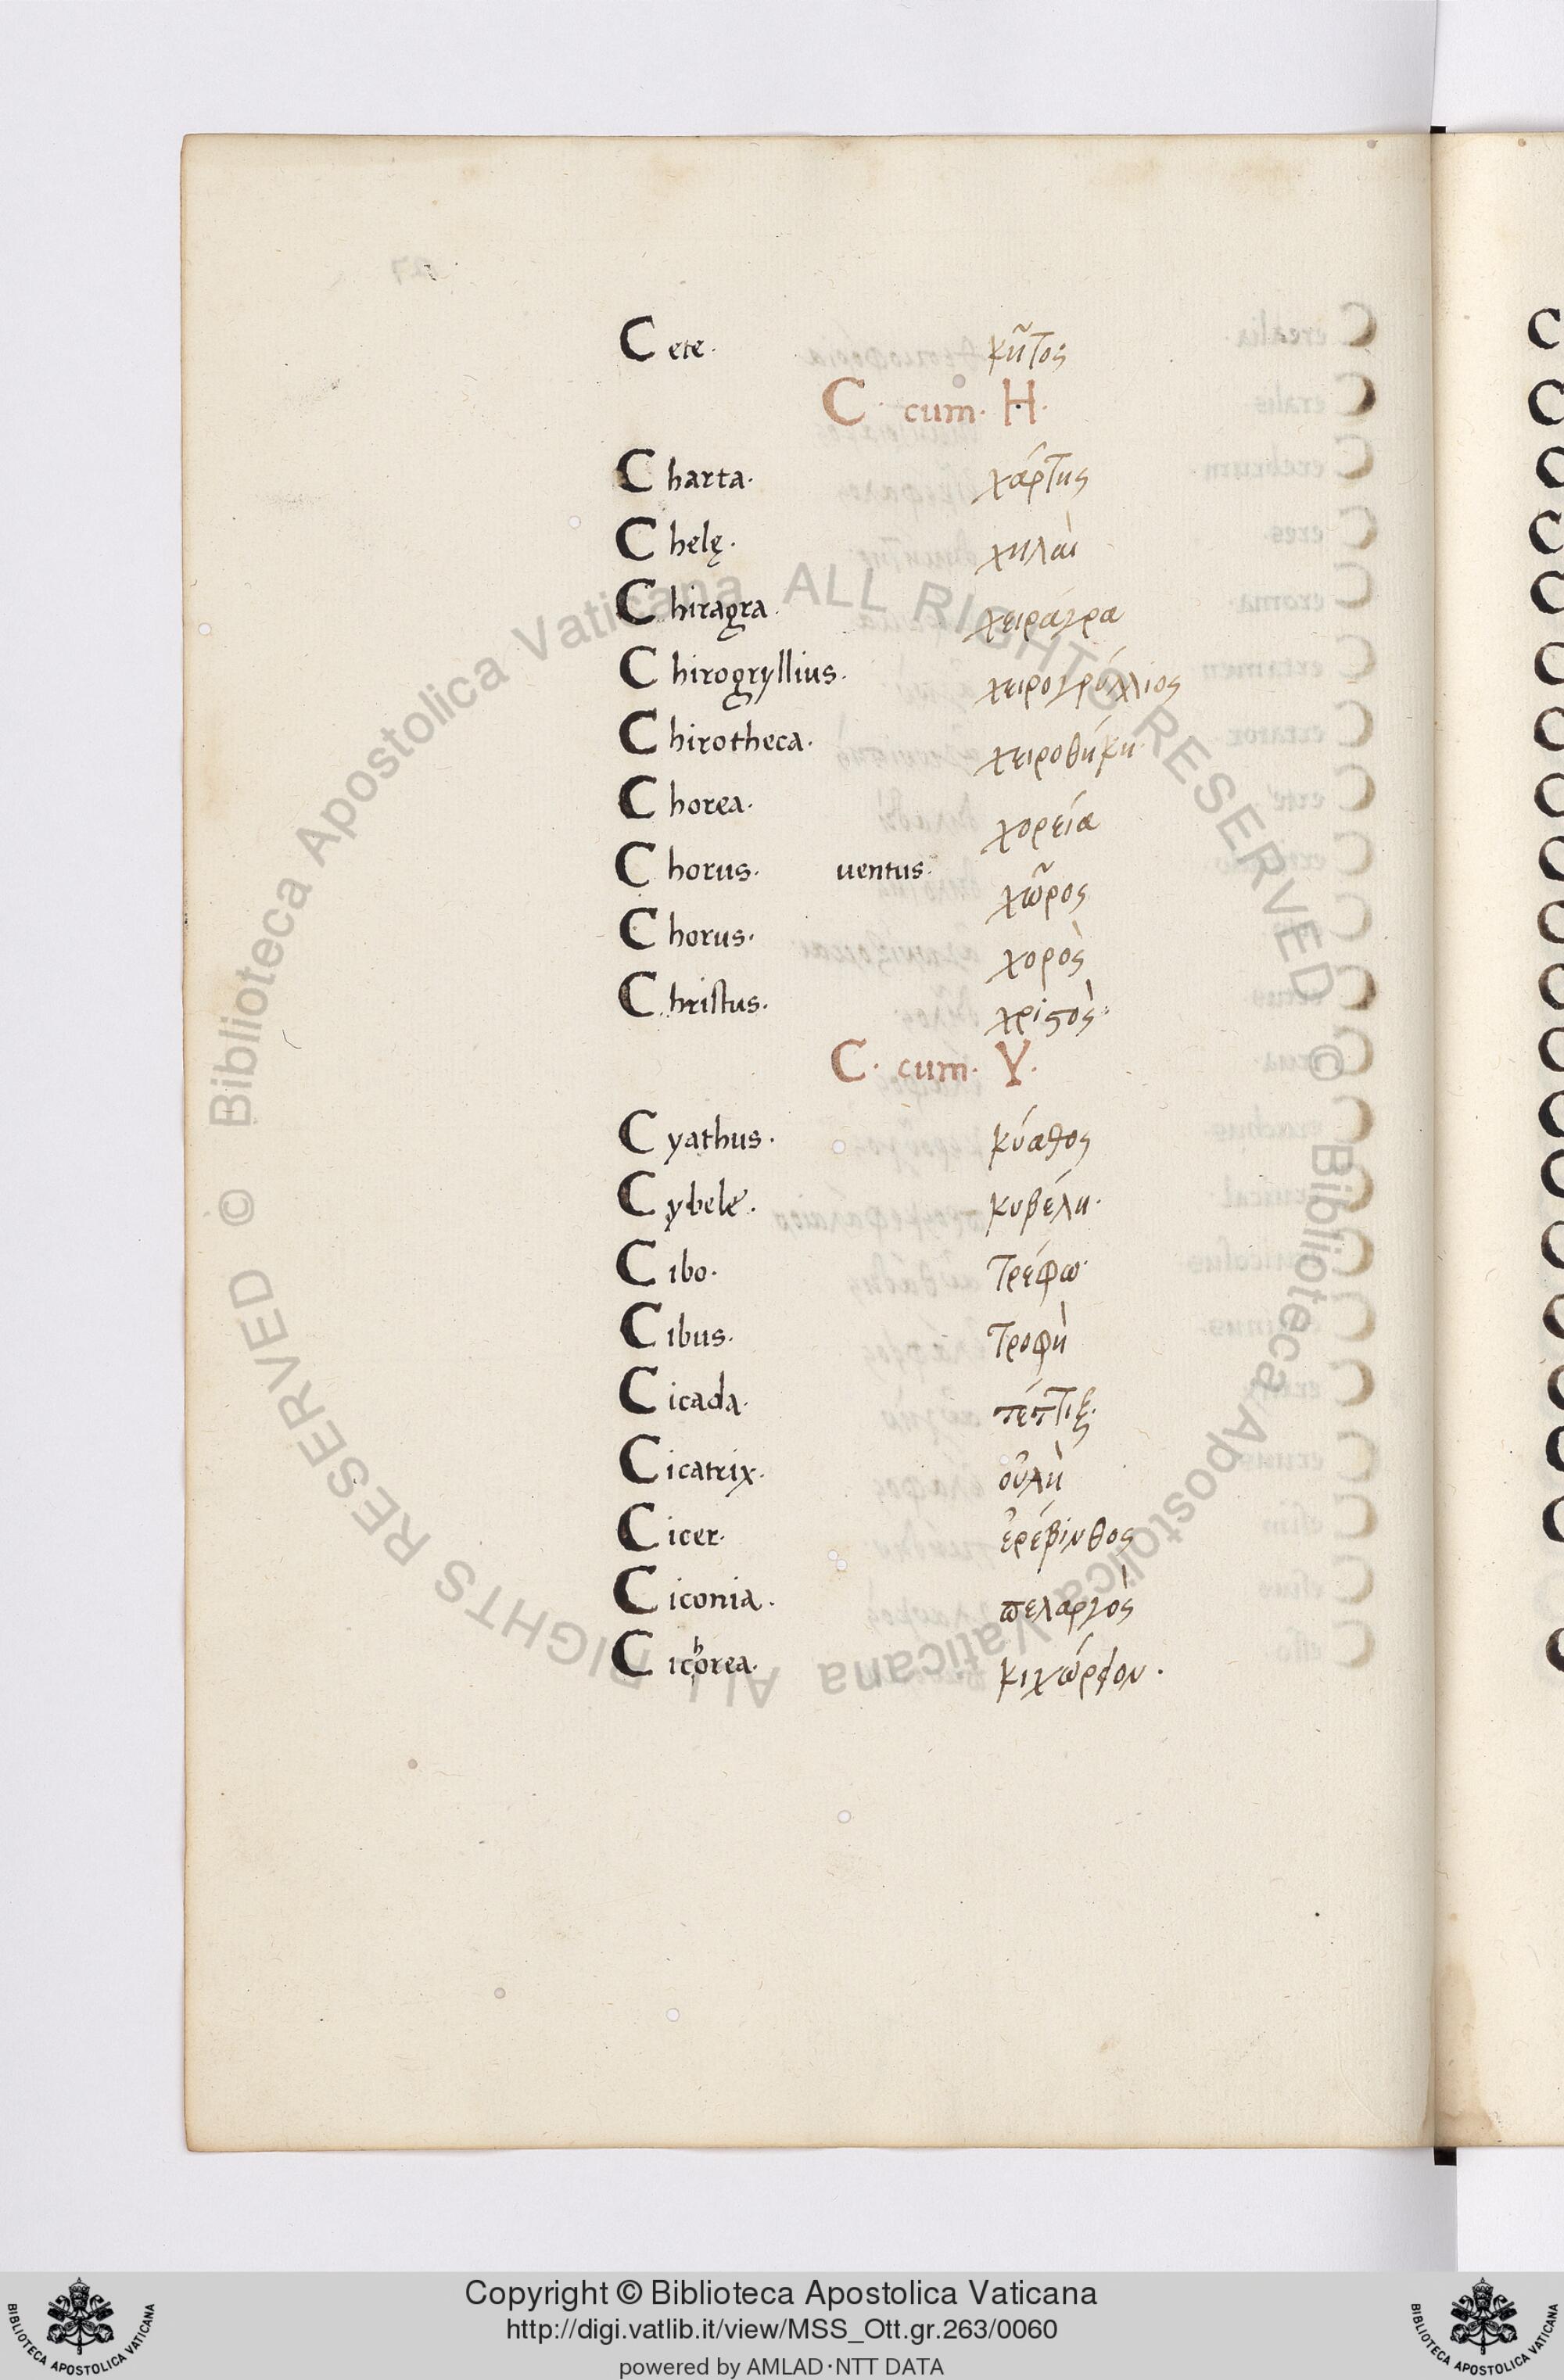 Cete. κῆτος
C. cum. H.
Charta. χάρτης
Chelę. χηλαὶ
Chiragra. χειράγρα
Chirogryllius. χειρογρύλλιος
Chirotheca. χειροθήκη
Chorea. χορεία
Chorus. uentus. χῶρος
Chorus. χορὸς
Christus. χριϛὸς.
C. cum. Y.
Cyathus. κύαθος
Cybele. κυβέλη.
Cibo. τρέφω.
Cibus. τροφὴ
Cicada. τέττιξ.
Cicatrix. οὐλὴ
Cicer. ἐρέβινθος
Ciconia. πελαργὸς
Cichorea. κιχώριον.
© Biblioteca Apostolica Vaticana ALL RIGHTS RESERVED
© Biblioteca Apostolica Vaticana ALL RIGHTS RESERVED
Copyright © Biblioteca Apostolica Vaticana
http://digi.vatlib.it/view/MSS_Ott.gr.263/0060
powered by AMLAD·NTT DATA
BIBLIOTECA APOSTOLICA VATICANA
BIBLIOTECA APOSTOLICA VATICANA